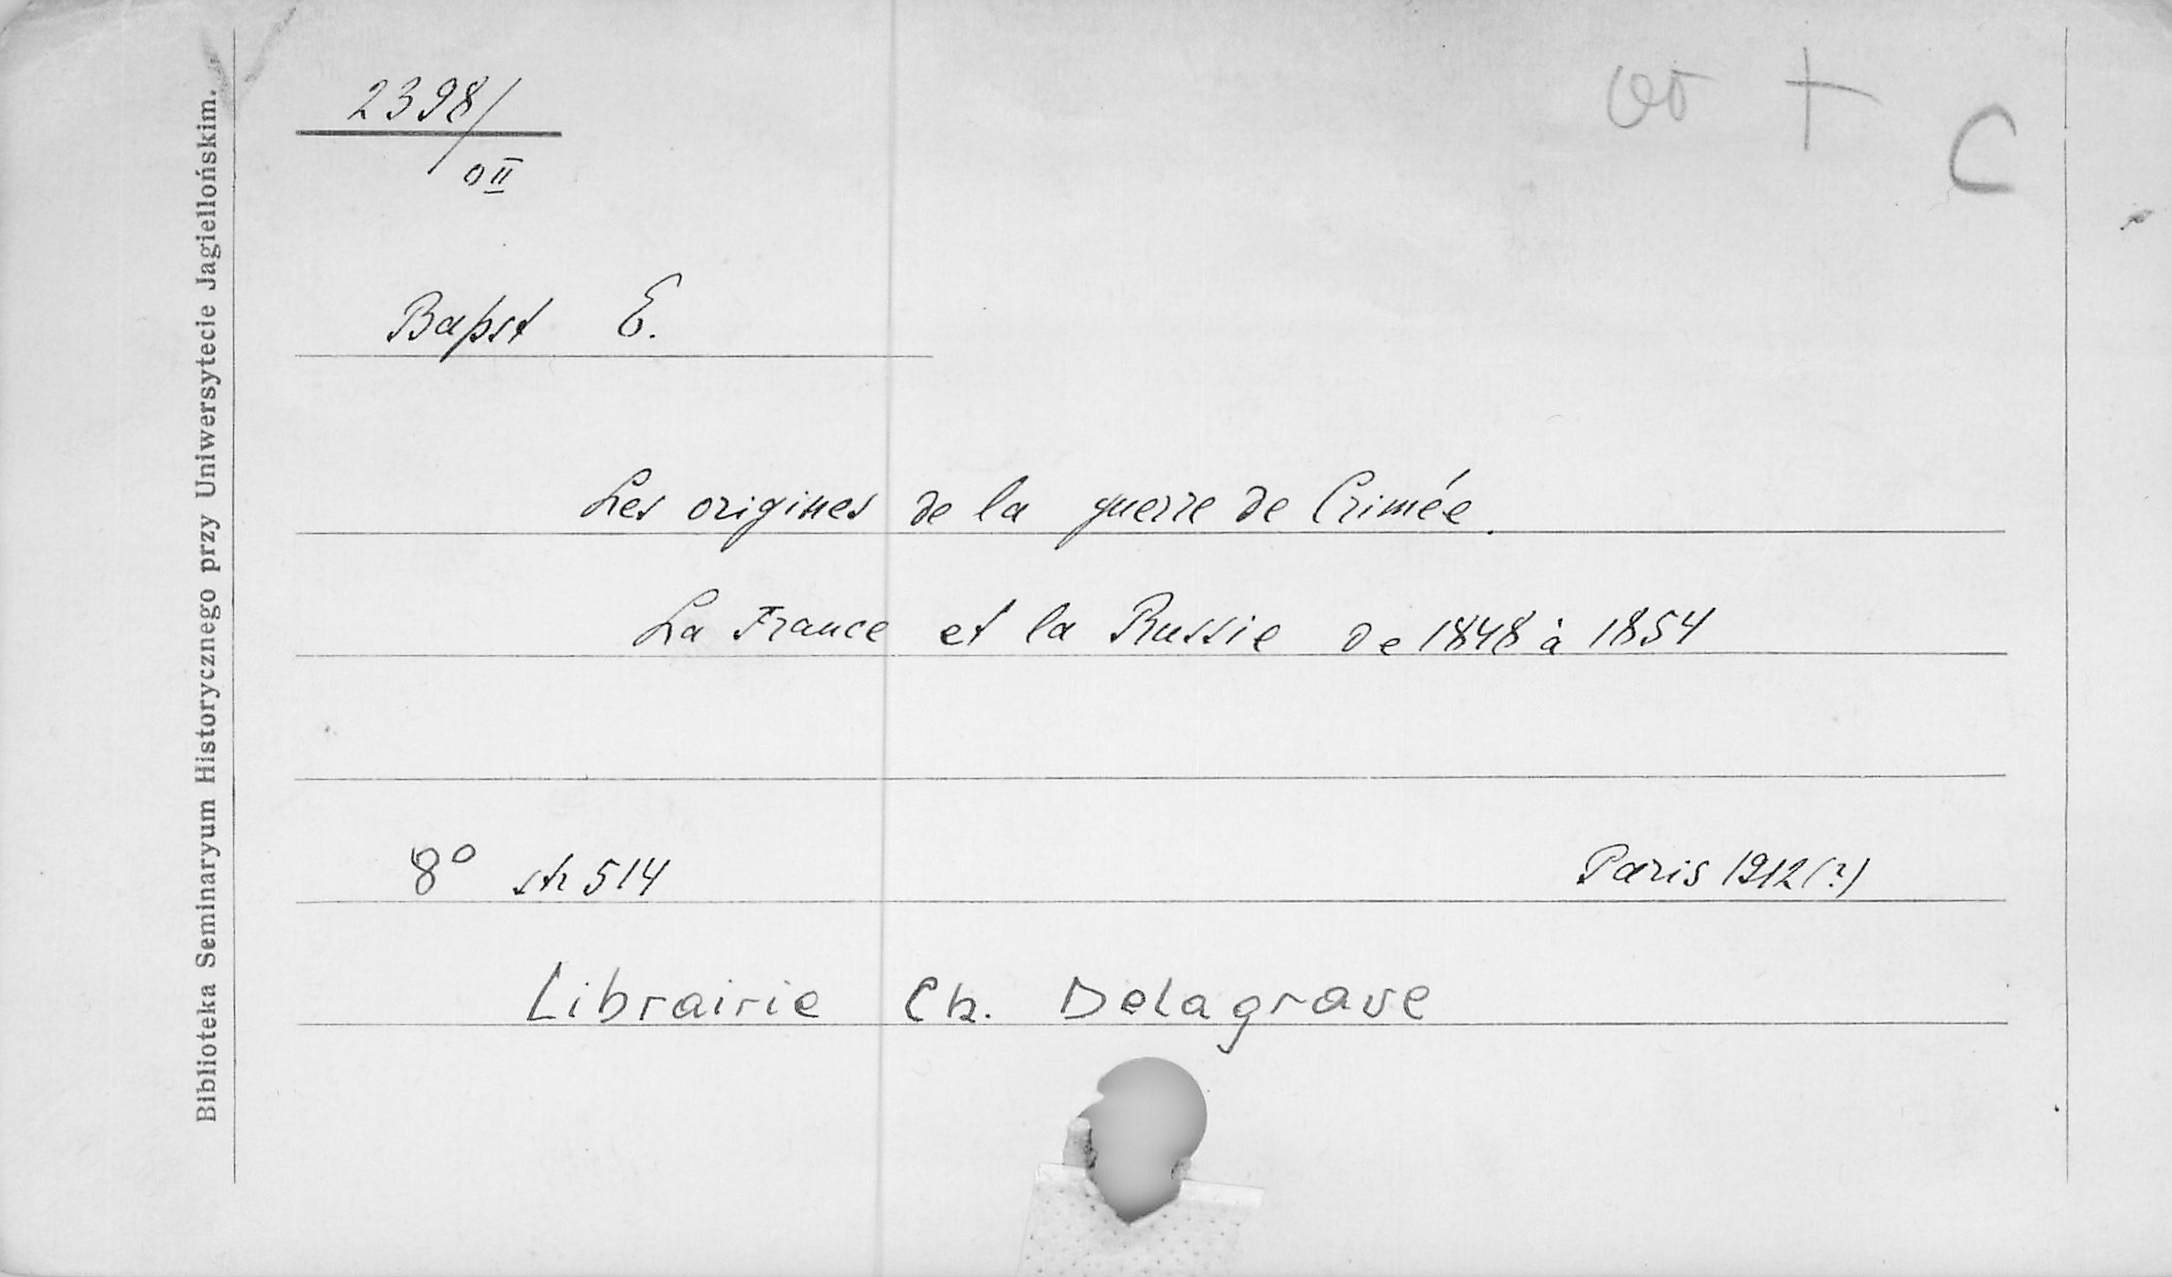 2398/
0II
+ C
Bapst E.
Les origines de la guerre de Crimée.
La France et la Russie de 1848 à 1854
8° str 514 Paris 1912(?)
Librairie Ch. Delagrave
Biblioteka Seminaryum Historycznego przy Uniwersytecie Jagiellońskim.